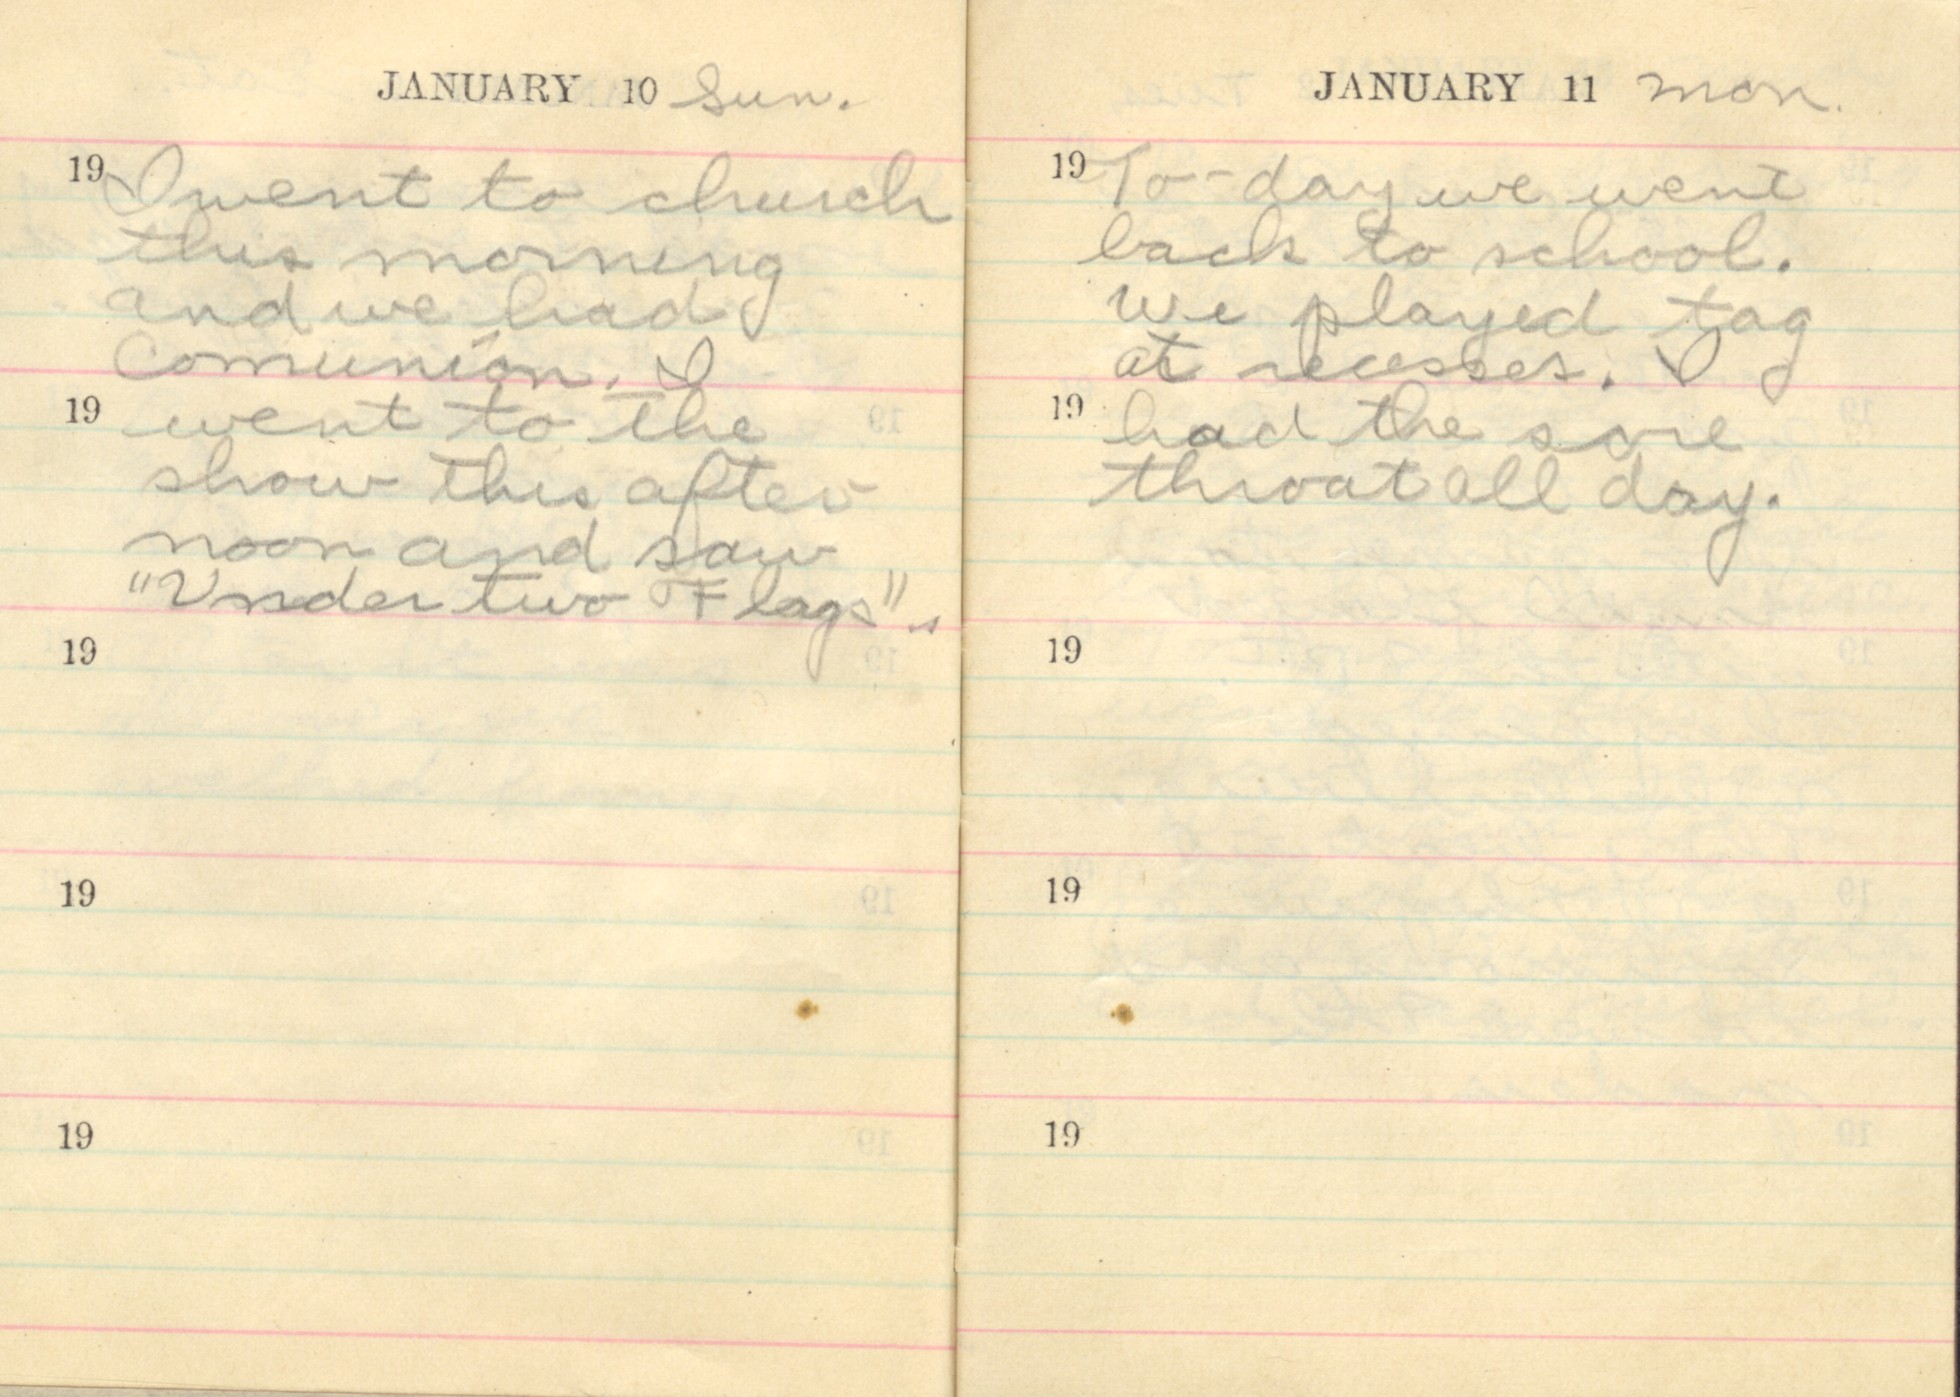 JANUARY 10 Sun.
19 I went to church
this morning
and we had
Comunion. I
19 went to the
show this after
noon and saw
"Under two Flags".
19
19
19
JANUARY 11 Mon.
19 To-day we went
back to school.
We played tag
at recesses. I
19 had the sore
throat all day.
19
19
19